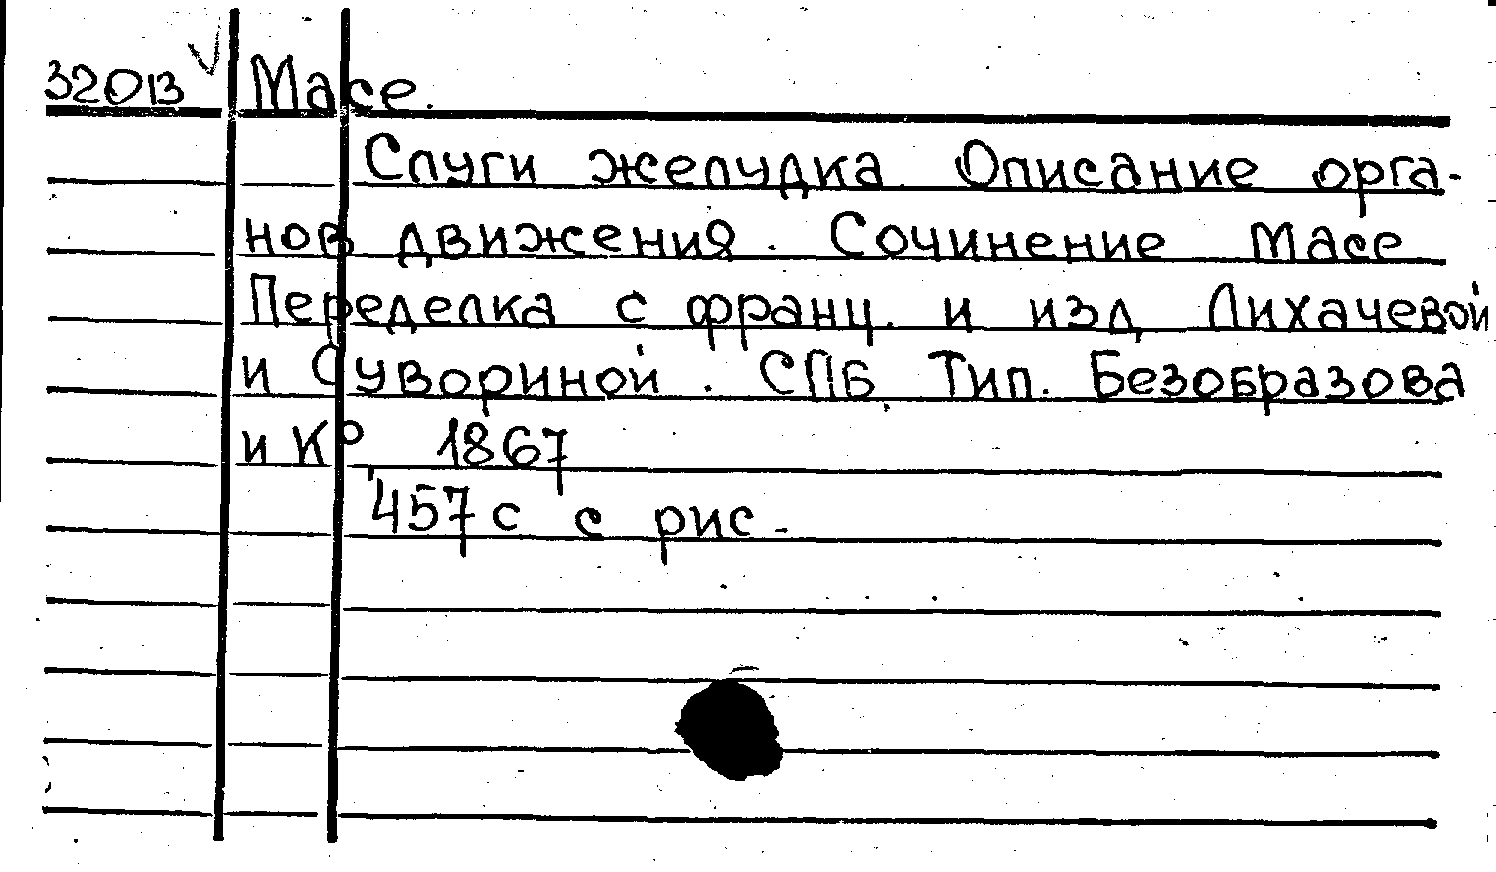 32013 Масе.
Слуги желудка. Описание орга-
нов движения. Сочинение Масе
Переделка с франц. и изд Лихачевой
и Сувориной. СПБ, Тип. Безобразова
и Ко, 1867
457 с с рис.